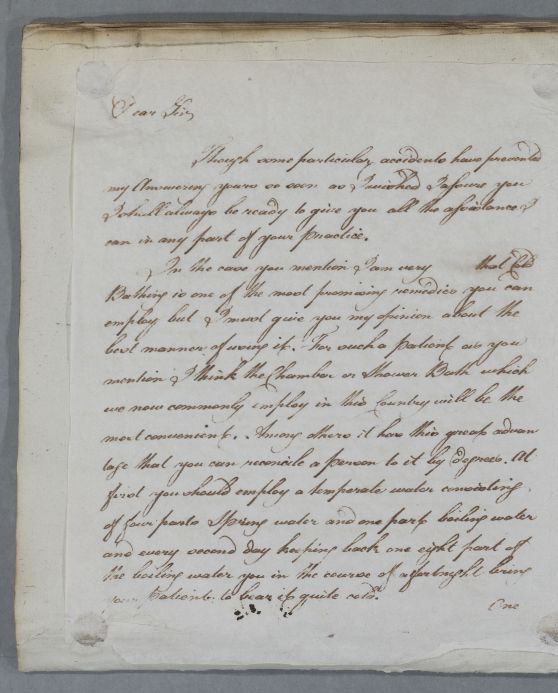 Dear Sir,
Though some particular accidents have prevented
my Answering yours so soon as I wished I assure you
I shall always be ready to give you all the assistance I
can in any part of your practice.
In the case you mention I am very that Cold
Bathing is one of the most promising remedies you can
employ but I must give you my opinion about the
best manner of using it. For such a patient as you
mention I think the Chamber or Shower Bath which
we now commonly employ in this Country will be the
most convenient. Among others it has this great advan
tage that you can reconcile a person to it by degrees. At
first you should employ a temperate water consisting
of four parts Spring water and one part boiling water
and every second day keeping back one eight part of
the boiling water you in the course of a fortnight bring
your Patient to bear it quite cold.
One